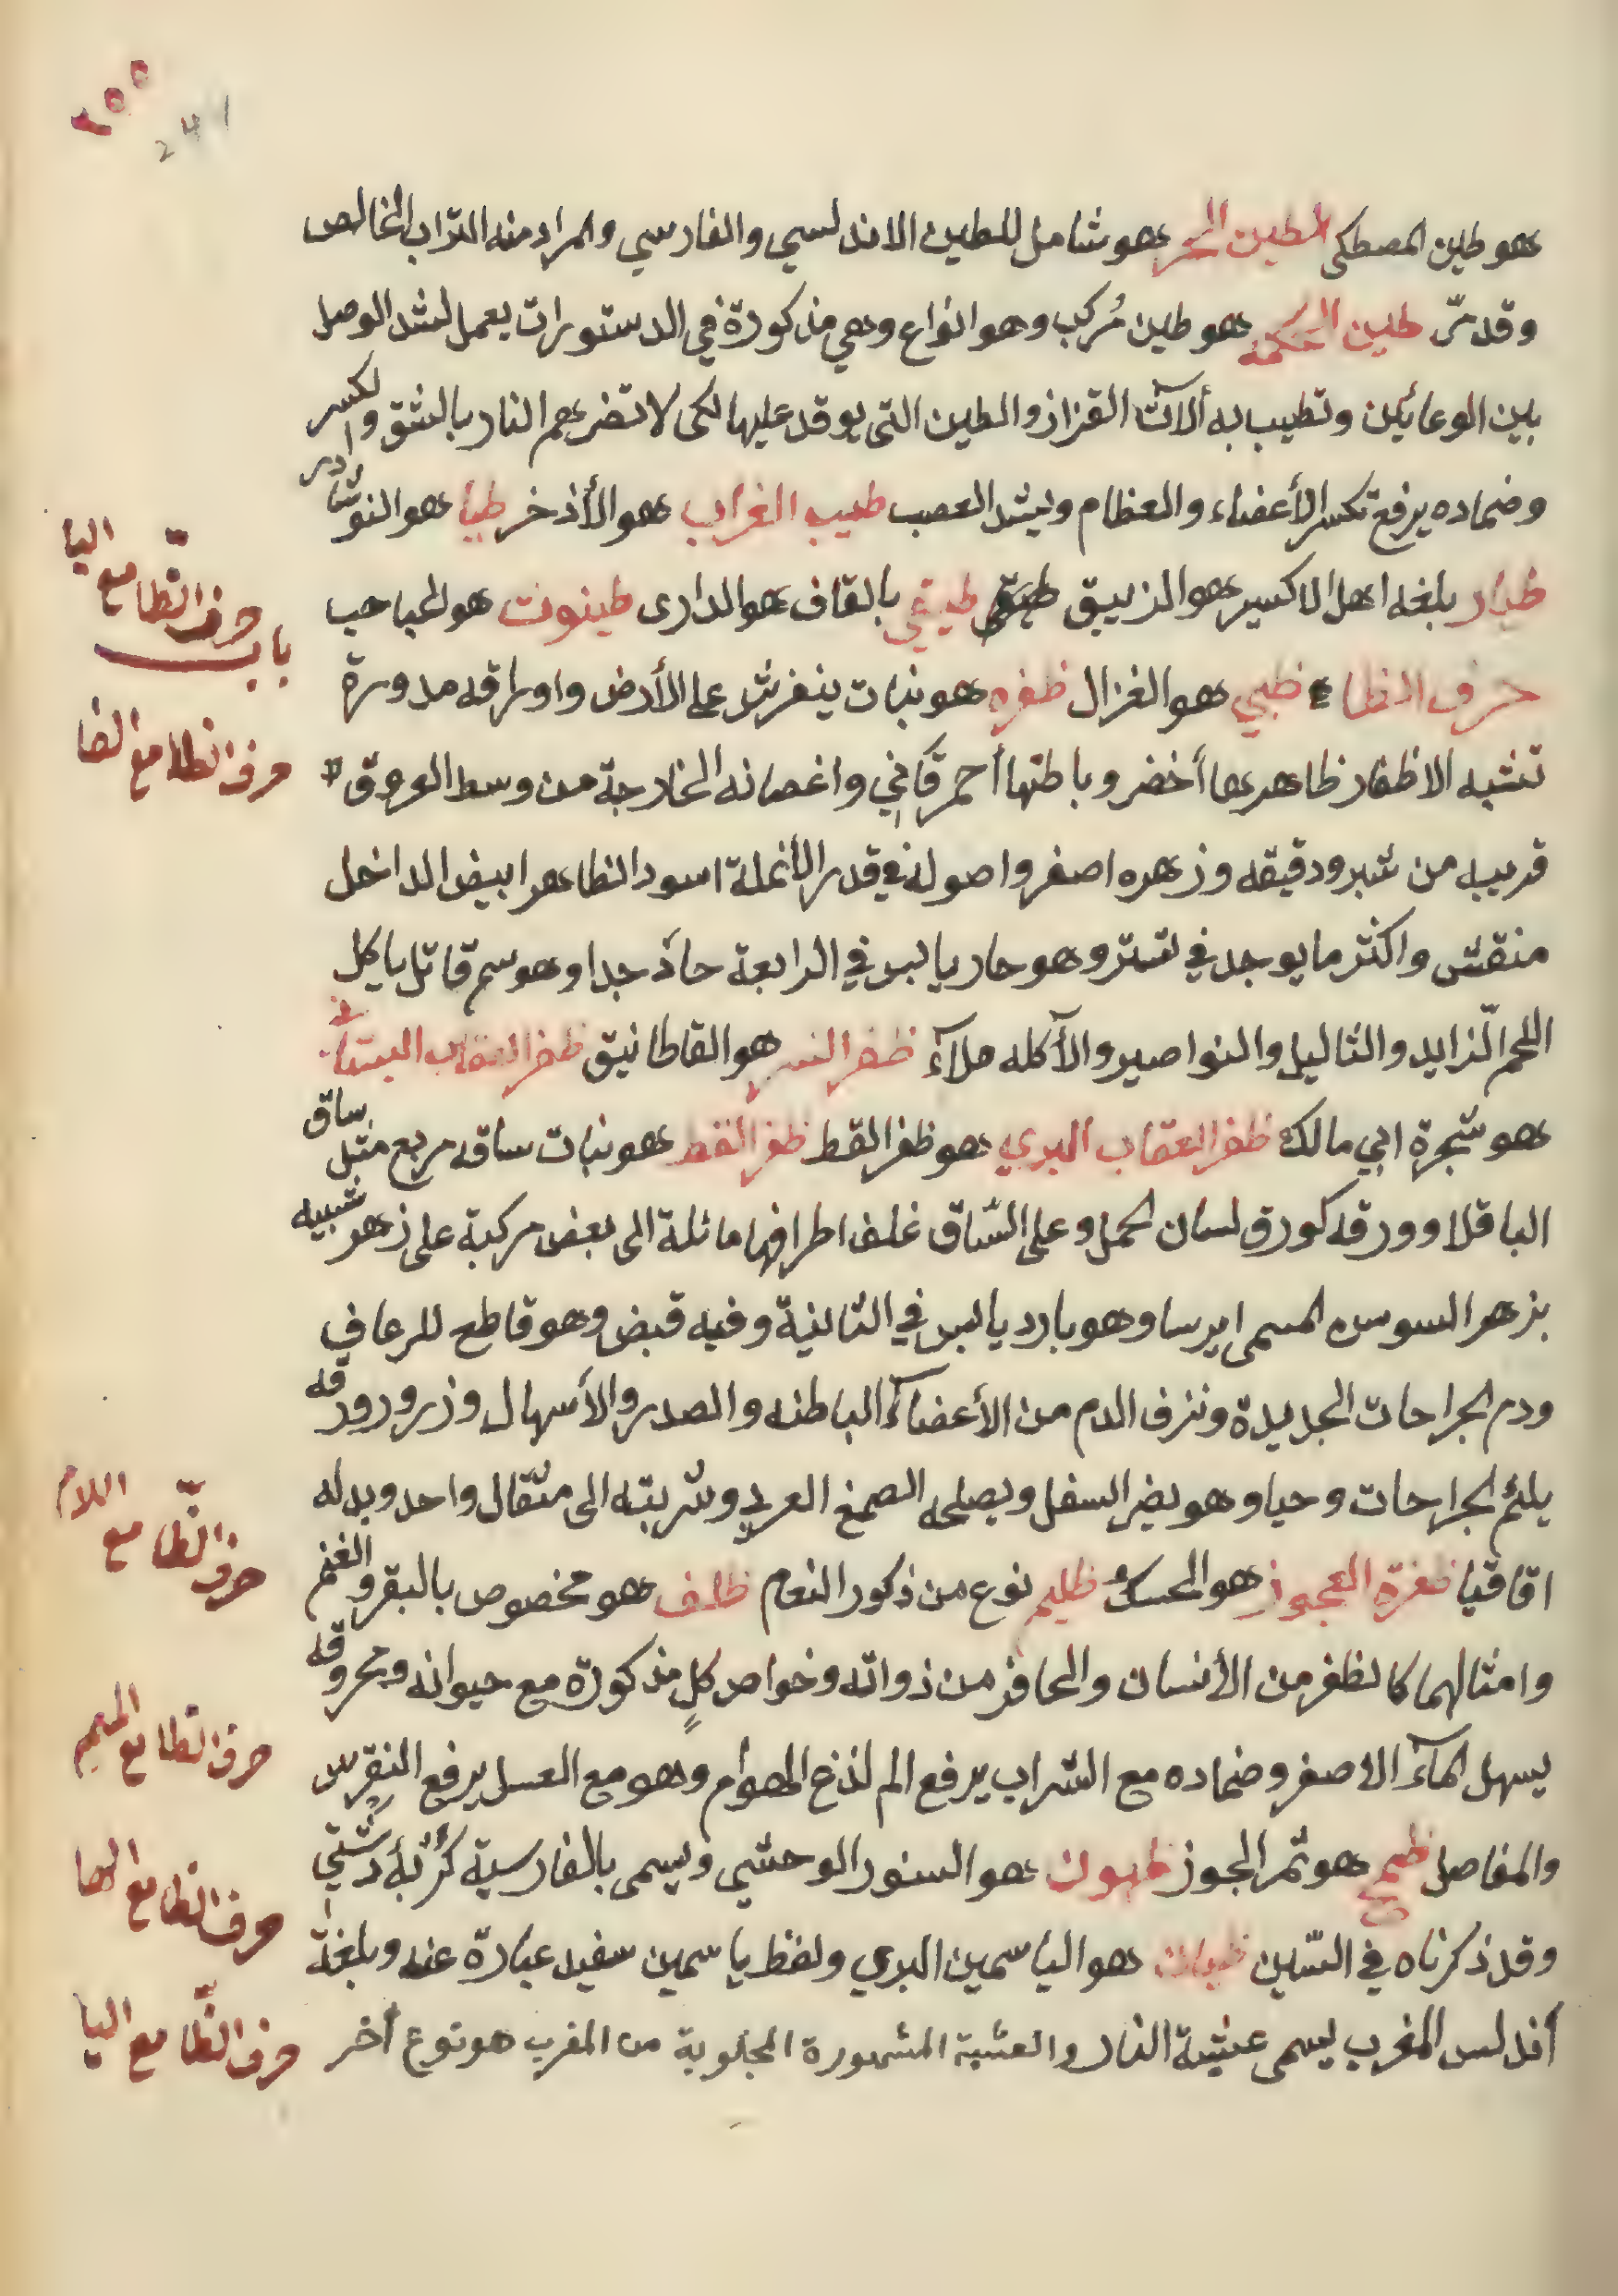 ٢٥٥
241
هو طين المصطكى الطين الحر هو شامل للطين الاندلسي والفارسي والمراد منه التراب الخالص
وقد مرّ طين الحكمة هو طين مُركب وهو انواع وهي مذكورة في الدستورات يعمل لشد الوصل
بين الوعائين وتطيب به ألآت القزاز والطين التى يوقد عليها لكى لا تضرهم النار بالشق والكسر
وضماده يرفع تكسر الأعضاء والعظام ويشد العصب طيب الغراب هو الأذخر طيا هو النوشادر
طيار بلغه اهل الاكسير هو الزيبق طيقي بالقاف هو الدارى طينوث هو لحباحب
حرف الظاء ظبي هو الغزال ظفره هو نبات ينفرش على الأرض واوراقه مدورة
تشبه الاظفار ظاهرها أخضر وباطنها أحمر قاني واغصانه الخارجة من وسط الورق
قريبه من شبر ودقيقه وزهره اصفر واصوله في قدر الأنملة اسود الظاهر ابيض الداخل
منقش واكثر ما يوجد في تستر وهو حار يابس في الرابعة حاد جدا وهو سم قاتل ياكل
اللحم الزايد والثاليل والنواصير والآكله طلآء ظفر النسر هو القاطانيق ظفر العقاب البستاني
هو شجرة ابي مالك ظفر العقاب البري هو ظفر القط ظفر القط هو نبات ساقه مربع مثل ساق
الباقلا وورقه كورق لسان لحمل وعلى السّاق غلف اطرافها مائلة الى بعض مركبة على زهر شبيه
بزهر السوسن المسمى ايرسا وهو بارد يابس في الثانية وفيه قبض وهو قاطع للرعاف
ودم الجراحات الجديدة ونزف الدم من الأعضاء الباطنه والصدر والأسهال وزرور ورقه
يلئم لجراحات وحيا وهو يضر السفل ويصلحه الصمغ العربي وشربته الى مثقال واحد وبدله
اقاقيا ظفرة العجوز هو الحسك ظليم نوع من ذكور النعام ظلف هو مخصوص بالبقر والغنم
وامثالهما كالظفر من الأنسان والحافر من ذواته وخواص كلٍ مذكورة مع حيوانه ومحروقه
يسهل المآء الاصفر وضماده مع الشراب يرفع الم لذع الهوام وهو مع العسل يرفع النقرس
والمفاصل ظمخ هو ثمر الجوز ظهون هو السنور الوحشي ويسمى بالفارسية كُرْبَهْ دَشْتِي
وقد ذكرناه في السّين ظيان هو الياسمين البري ولفظ ياسمين سفيد عبارة عنه وبلغة
أندلس المغرب يسمى عشبة النار والعشبة المشهورة المجلوبة من المغرب هو نوع أخر
حرف الطّا مع اليا
باب
حرف الظا مع الفا
حرف الظّا مع اللام
حرف الظا مع الميم
حرف الظا مع الها
حرف الظّا مع اليا